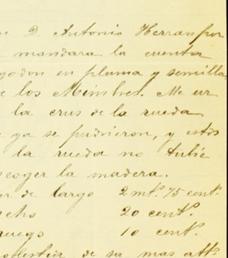 D Antonio Herran por
mandara la cuenta
godon en pluma y semilla
e los Mimbres. Me ur
la crus de la rueda
e ya se pudrieron, y estos
la rueda no
escoger la madera.
de largo 2 mts. 75 cent.
cho 20 cent.
10 cent.
de su mas att.